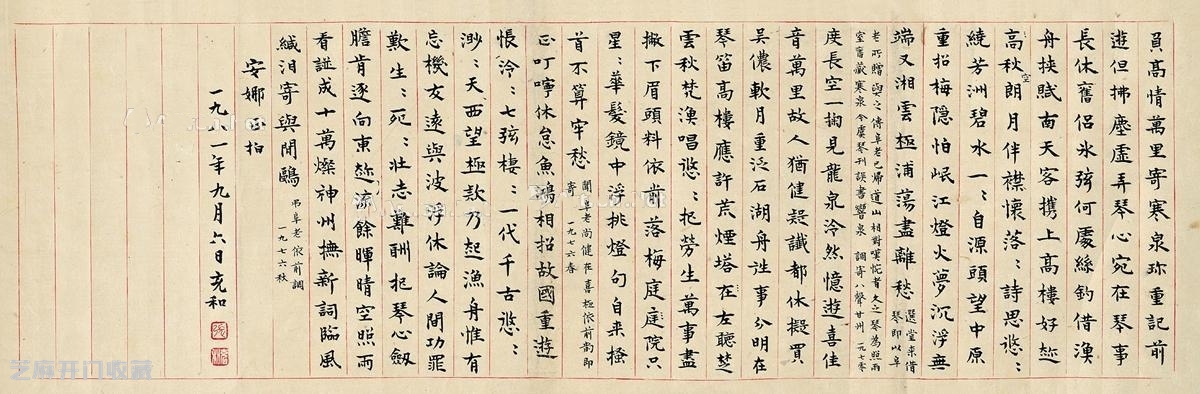 負高情萬里寄寒泉珎重記前
遊但拂塵虛弄琴心宛在琴事
長休舊侶氷弦何處絲釣借漁
舟挾賦南天客携上高樓好趂
高秋空朗月伴襟懷落〻詩思悠〻
繞芳洲碧水一〻自源頭望中原
重招梅隱怕岷江燈火夢沉浮無
端又湘雲極浦蕩盡離愁 選堂來借琴即以阜
老所贈與之傳阜老已歸道山相對嘆惋者久之琴為照雨
室舊藏寒泉今虞琴刊誤書響泉 調寄八聲甘州 一九七零
度長空一掬見龍泉泠然憶遊喜佳
音萬里故人猶健疑讖都休擬買
吳儂軟月重泛石湖舟往事分明在
琴笛高樓應許荒煙塔在左聽楚
雲秋梵漁唱悠〻把勞生萬事盡
撇下眉頭料依前落梅庭院只
星〻華髮鏡中浮挑燈句自來搔
首不算牢愁 聞阜老尚健在喜極依前韵即
寄 一九七六春
正叮嚀休怠魚鴻相招故國重遊
悵泠〻七弦棲〻一代千古悠〻
渺〻天西望極欸乃起漁舟惟有
忘機友遠與波浮休論人間功罪
歎生〻死〻壯志難酬把琴心劍
膽肯逐向東趂流餘暉晴空照雨
看謎成十萬燦神州撫新詞臨風
緘淚寄與閒鷗 弔阜老依前調
一九七六秋
安娜正拍
一九八一年九月六日充和
芝麻开门收藏